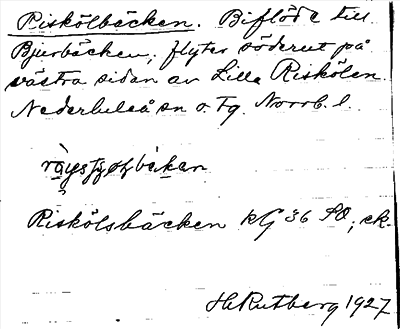 Riskölbäcken. Biflöde till
Bjurbäcken, flyter söderut på
västra sidan av Lilla Riskölen.
Nederluleå sn o. Tg. Norrb. l.
Riskölsbäcken kG 36 SO, ek.
H. Rutberg 1927